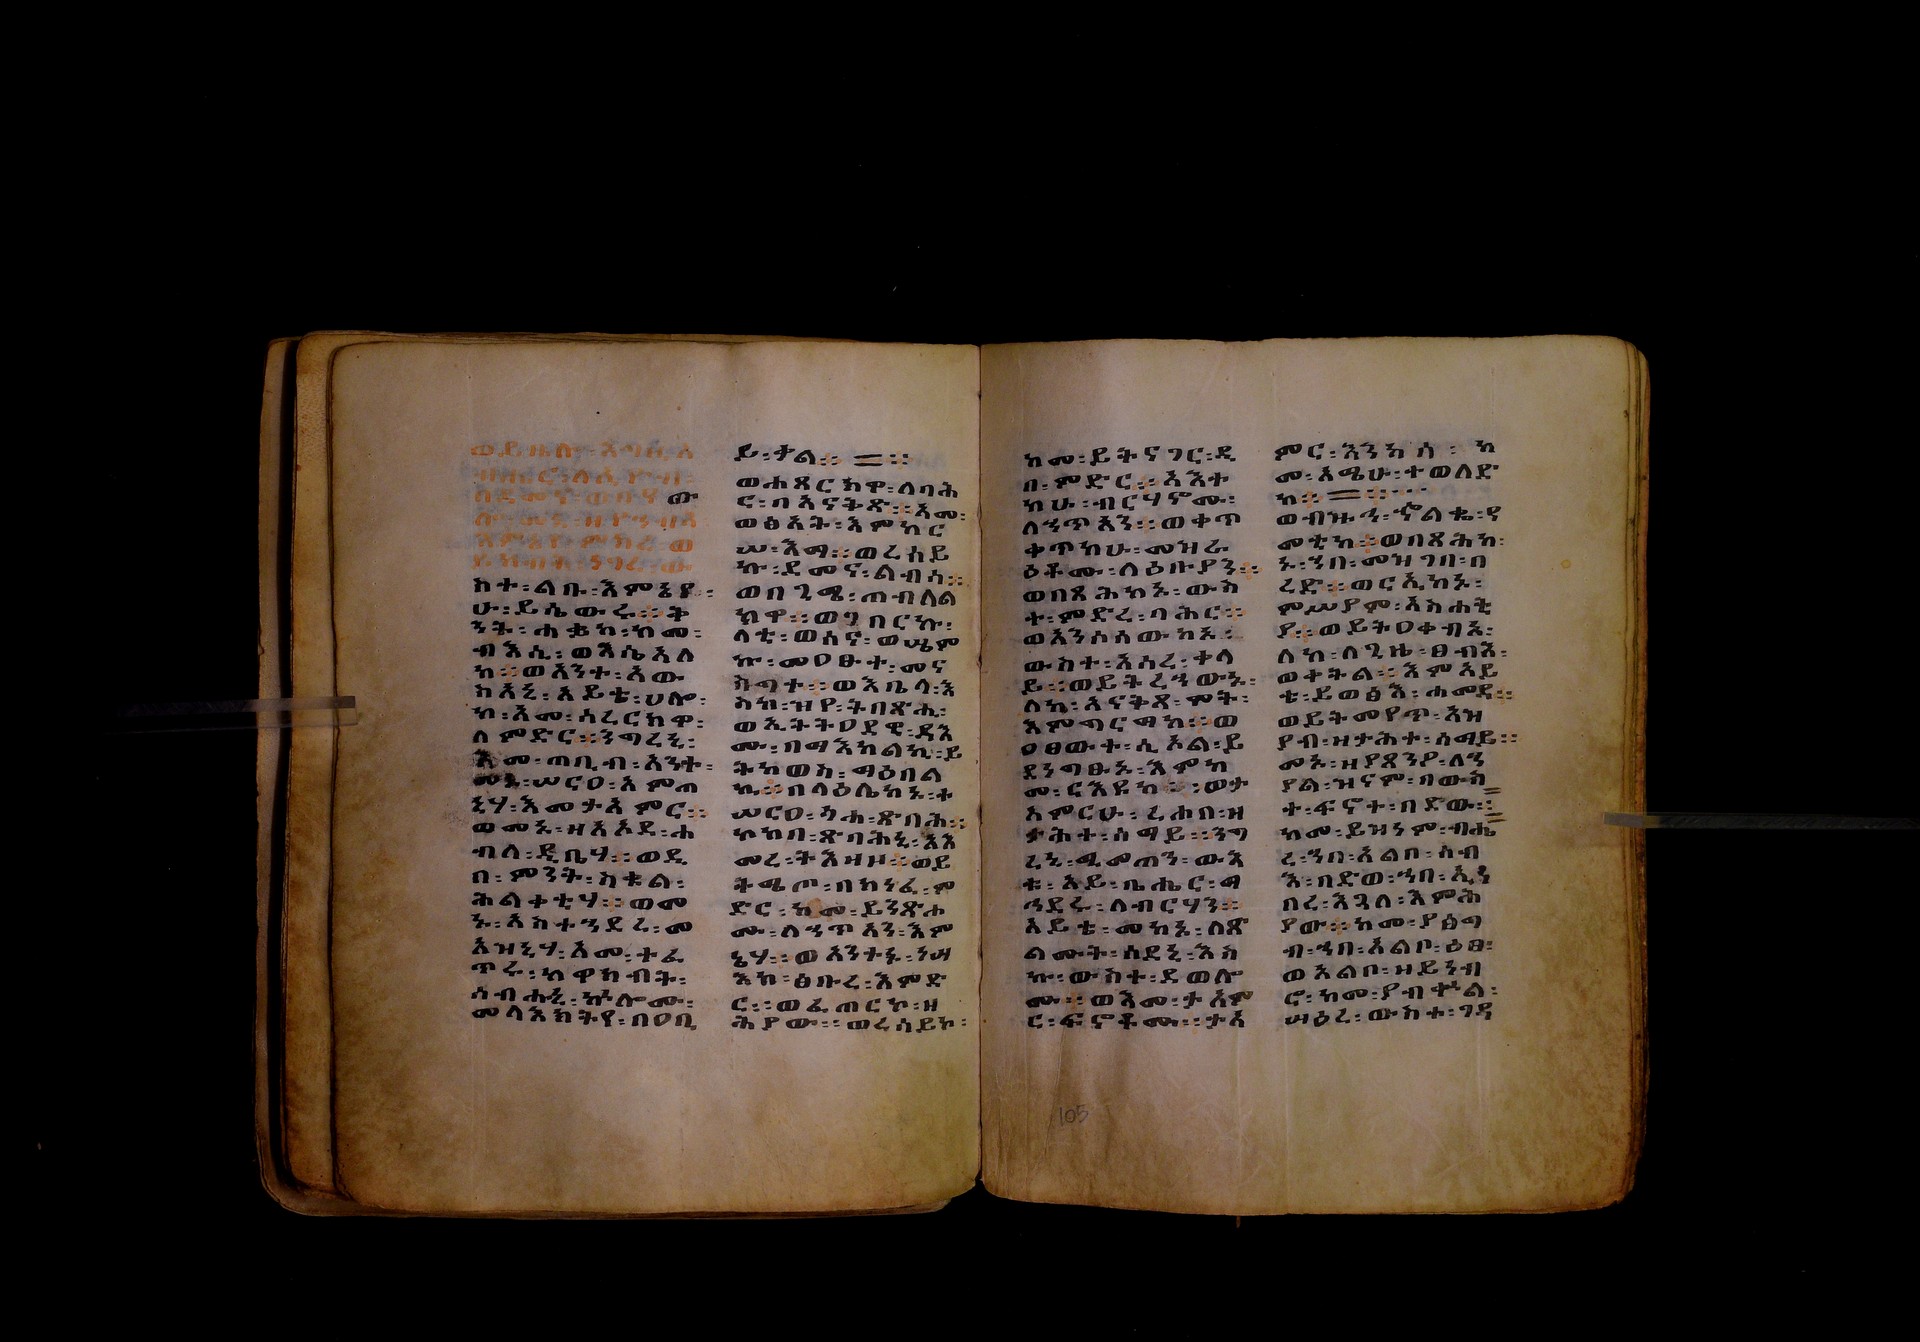 በደመና፡
ከተ፡ልቡ፡እምኔየ፡
ሁ፡ይሴውሩ።ት
ንት፡ሐቌከ፡ከመ፡
ብእሲ፡ወእሴአለ
ከ።ወአንተ፡አው
ከአኒ፡አይቴ፡ሀሎ፡
ከ፡አመ፡ሳረርክዋ፡
ለምድር።ንግረኒ፡
እመ፡ጠቢብ፡አንተ፡
መኑ፡ሠርዐ፡አምጠ
ኒሃ፡እመታአምር።
ወመኑ፡ዘአኦደ፡ሐ
ብለ፡ዲቤሃ።ወዲ
በ፡ምንት፡
ሕልቀቲሃ።ወመ
ኑ፡አስተኀደረ፡መ
እዝኒሃ፡አመ፡ተፈ
ጥሩ፡ከዋክብት፡
ሰብሐኒ፡ኵሎሙ፡
መላእክትየ፡በዐቢ
ይ፡ቃል።
ወሐጸርክዋ፡ለባሕ
ር፡በአናቅጽ።አመ፡
ወፅአት፡እምከር
ሠ፡እማ።ወረሰይ
ኩ፡ደመና፡ልብሳ።
ወበጊሜ፡ጠብለል
ክዋ።ወገበርኩ፡
ላቲ፡ወሰና፡ወሤም
ኩ፡መዐፁተ፡መና
ስግተ።ወእቤላ፡እ
ስከ፡ዝየ፡ትበጽሒ፡
ወኢትትዐደዊ፡ዳእ
ሙ፡በማእከልኪ፡ይ
ትከወስ፡ማዕበል
ኪ።በላዕሌከኑ፡ተ
ሠርዐ፡ጎሐ፡ጽባሕ።
ኮከበ፡ጽባሕኒ፡እእ
መረ፡ትእዛዞ።ወይ
ትሜጦ፡በክነፈ፡ም
ድር፡ከመ፡ይንጽሐ
ሙ፡ለኀጥአን፡እም
ኔሃ።ወአንተኑ፡ነሣ
እከ፡ፅቡረ፡እምድ
ር።ወፈጠርኮ፡ዘ
ሕያው።ወረሰይኮ፡
ከመ፡ይትናገር፡ዲ
በ፡ምድር።አእተ
ትከሁ፡ብርሃኖሙ፡
ለኀጥአን።ወቀጥ
ቀጥከሁ፡መዝራ
ዕቶሙ፡ለዕቡያን።
ወበጻሕከኑ፡ውስ
ተ፡ምድረ፡ባሕር።
ወአንሶሰውከኑ፡
ውስተ፡አሰረ፡ቀላ
ይ።ወይትረኀውኑ፡
ለከ፡አናቅጸ፡ሞት፡
እምግርማከ።ወ
ዐፀውተ፡ሲኦል፡ይ
ደንግፁኑ፡እምከ
መ፡ርእዩከ።ወታ
አምርሁ፡ረሕበ፡ዘ
ታሕተ፡ሰማይ።ንግ
ረኒ፡ሚመጠን፡ውእ
ቱ፡አይ፡ብሔር፡ማ
ኅደሩ፡ለብርሃን።
አይቴ፡መከኑ፡ለጽ
ልመት፡ሰደኒ፡እስ
ኩ፡ውስተ፡ደወሎ
ሙ።ወእመ፡ታአም
ር፡ፍኖቶሙ።ታአ
ምር፡እንከሰ፡ከ
መ፡አሜሁ፡ተወለድ
ከ።
ወብዙኅ፡ኍልቈ፡ዓ
መቲከ።ወበጻሕከ፡
ኑ፡ኀበ፡መዝገበ፡በ
ረድ።ወርኢከኑ፡
ምሥያም፡አስሐቲ
ያ።ወይትዐቀብኑ፡
ለከ፡ለጊዜ፡ፀብእ፡
ወቀትል።እምአይ
ቴ፡ይወፅእ፡ሐመዳ።
ወይትመየጥ፡አዝ
ያብ፡ዘታሕተ፡ሰማይ።
መኑ፡ዘያጸንዖ፡ለኀ
ያል፡ዝናም፡በውስ
ተ፡ፍኖተ፡በድው።
ከመ፡ይዝንም፡ብሔ
ረ፡ኀበ፡አልቦ፡ሰብ
እ፡በድወ፡ኀበ፡ኢኀ
በረ፡እጓለ፡እምሕ
ያው።ከመ፡ያፅግ
ብ፡ኀበ፡አልቦ፡ዕፀ፡
ወአልቦ፡ዘይነብ
ሮ፡ከመ፡ያብቍል፡
ሣዕረ፡ውስተ፡ገዳ
105